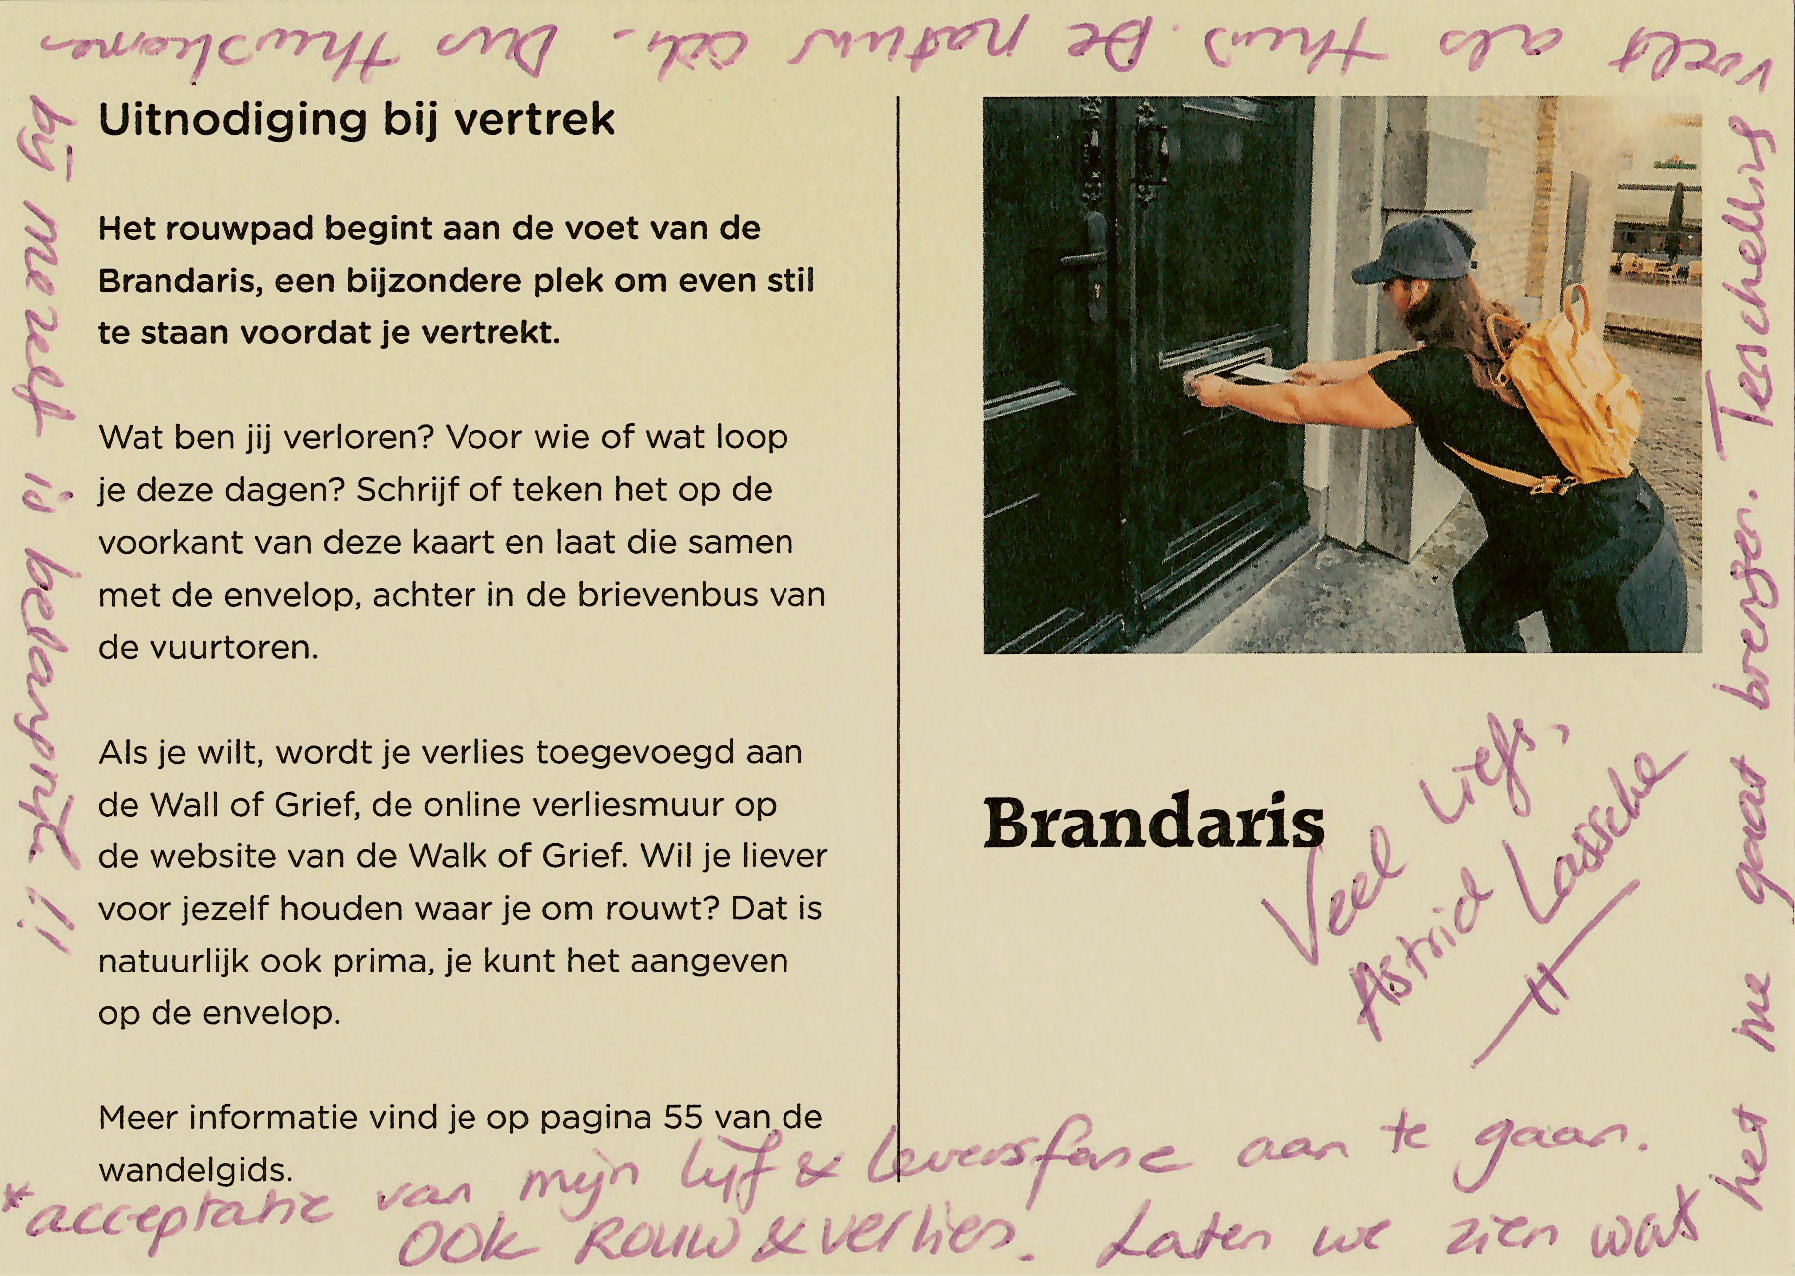 Uitnodiging bij vertrek
Het rouwpad begint aan de voet van de
Brandaris, een bijzondere plek om even stil
te staan voordat je vertrekt.
Wat ben jij verloren? Voor wie of wat loop
je deze dagen? Schrijf of teken het op de
voorkant van deze kaart en laat die samen
met de envelop, achter in de brievenbus van
de vuurtoren.
Als je wilt, wordt je verlies toegevoegd aan
de Wall of Grief, de online verliesmuur op
de website van de Walk of Grief. Wil je liever
voor jezelf houden waar je om rouwt? Dat is
natuurlijk ook prima, je kunt het aangeven
op de envelop.
Meer informatie vind je op pagina 55 van de
wandelgids.
Brandaris
Veel Liefs,
Astrid Lassche
*acceptatie van mijn lijf & levensfase aan te gaan.
OOK ROUW & verlies. Laten we zien wat
het me gaat brengen. Terschelling
voelt als thuis. De natuur ook. Dus ook thuiskomen
bij mezelf is belangrijk!!